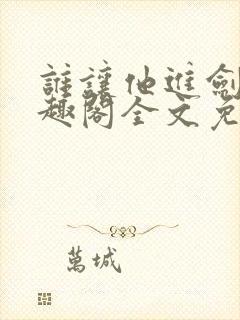 誰讓他進劍
趣閣全文免
萬城